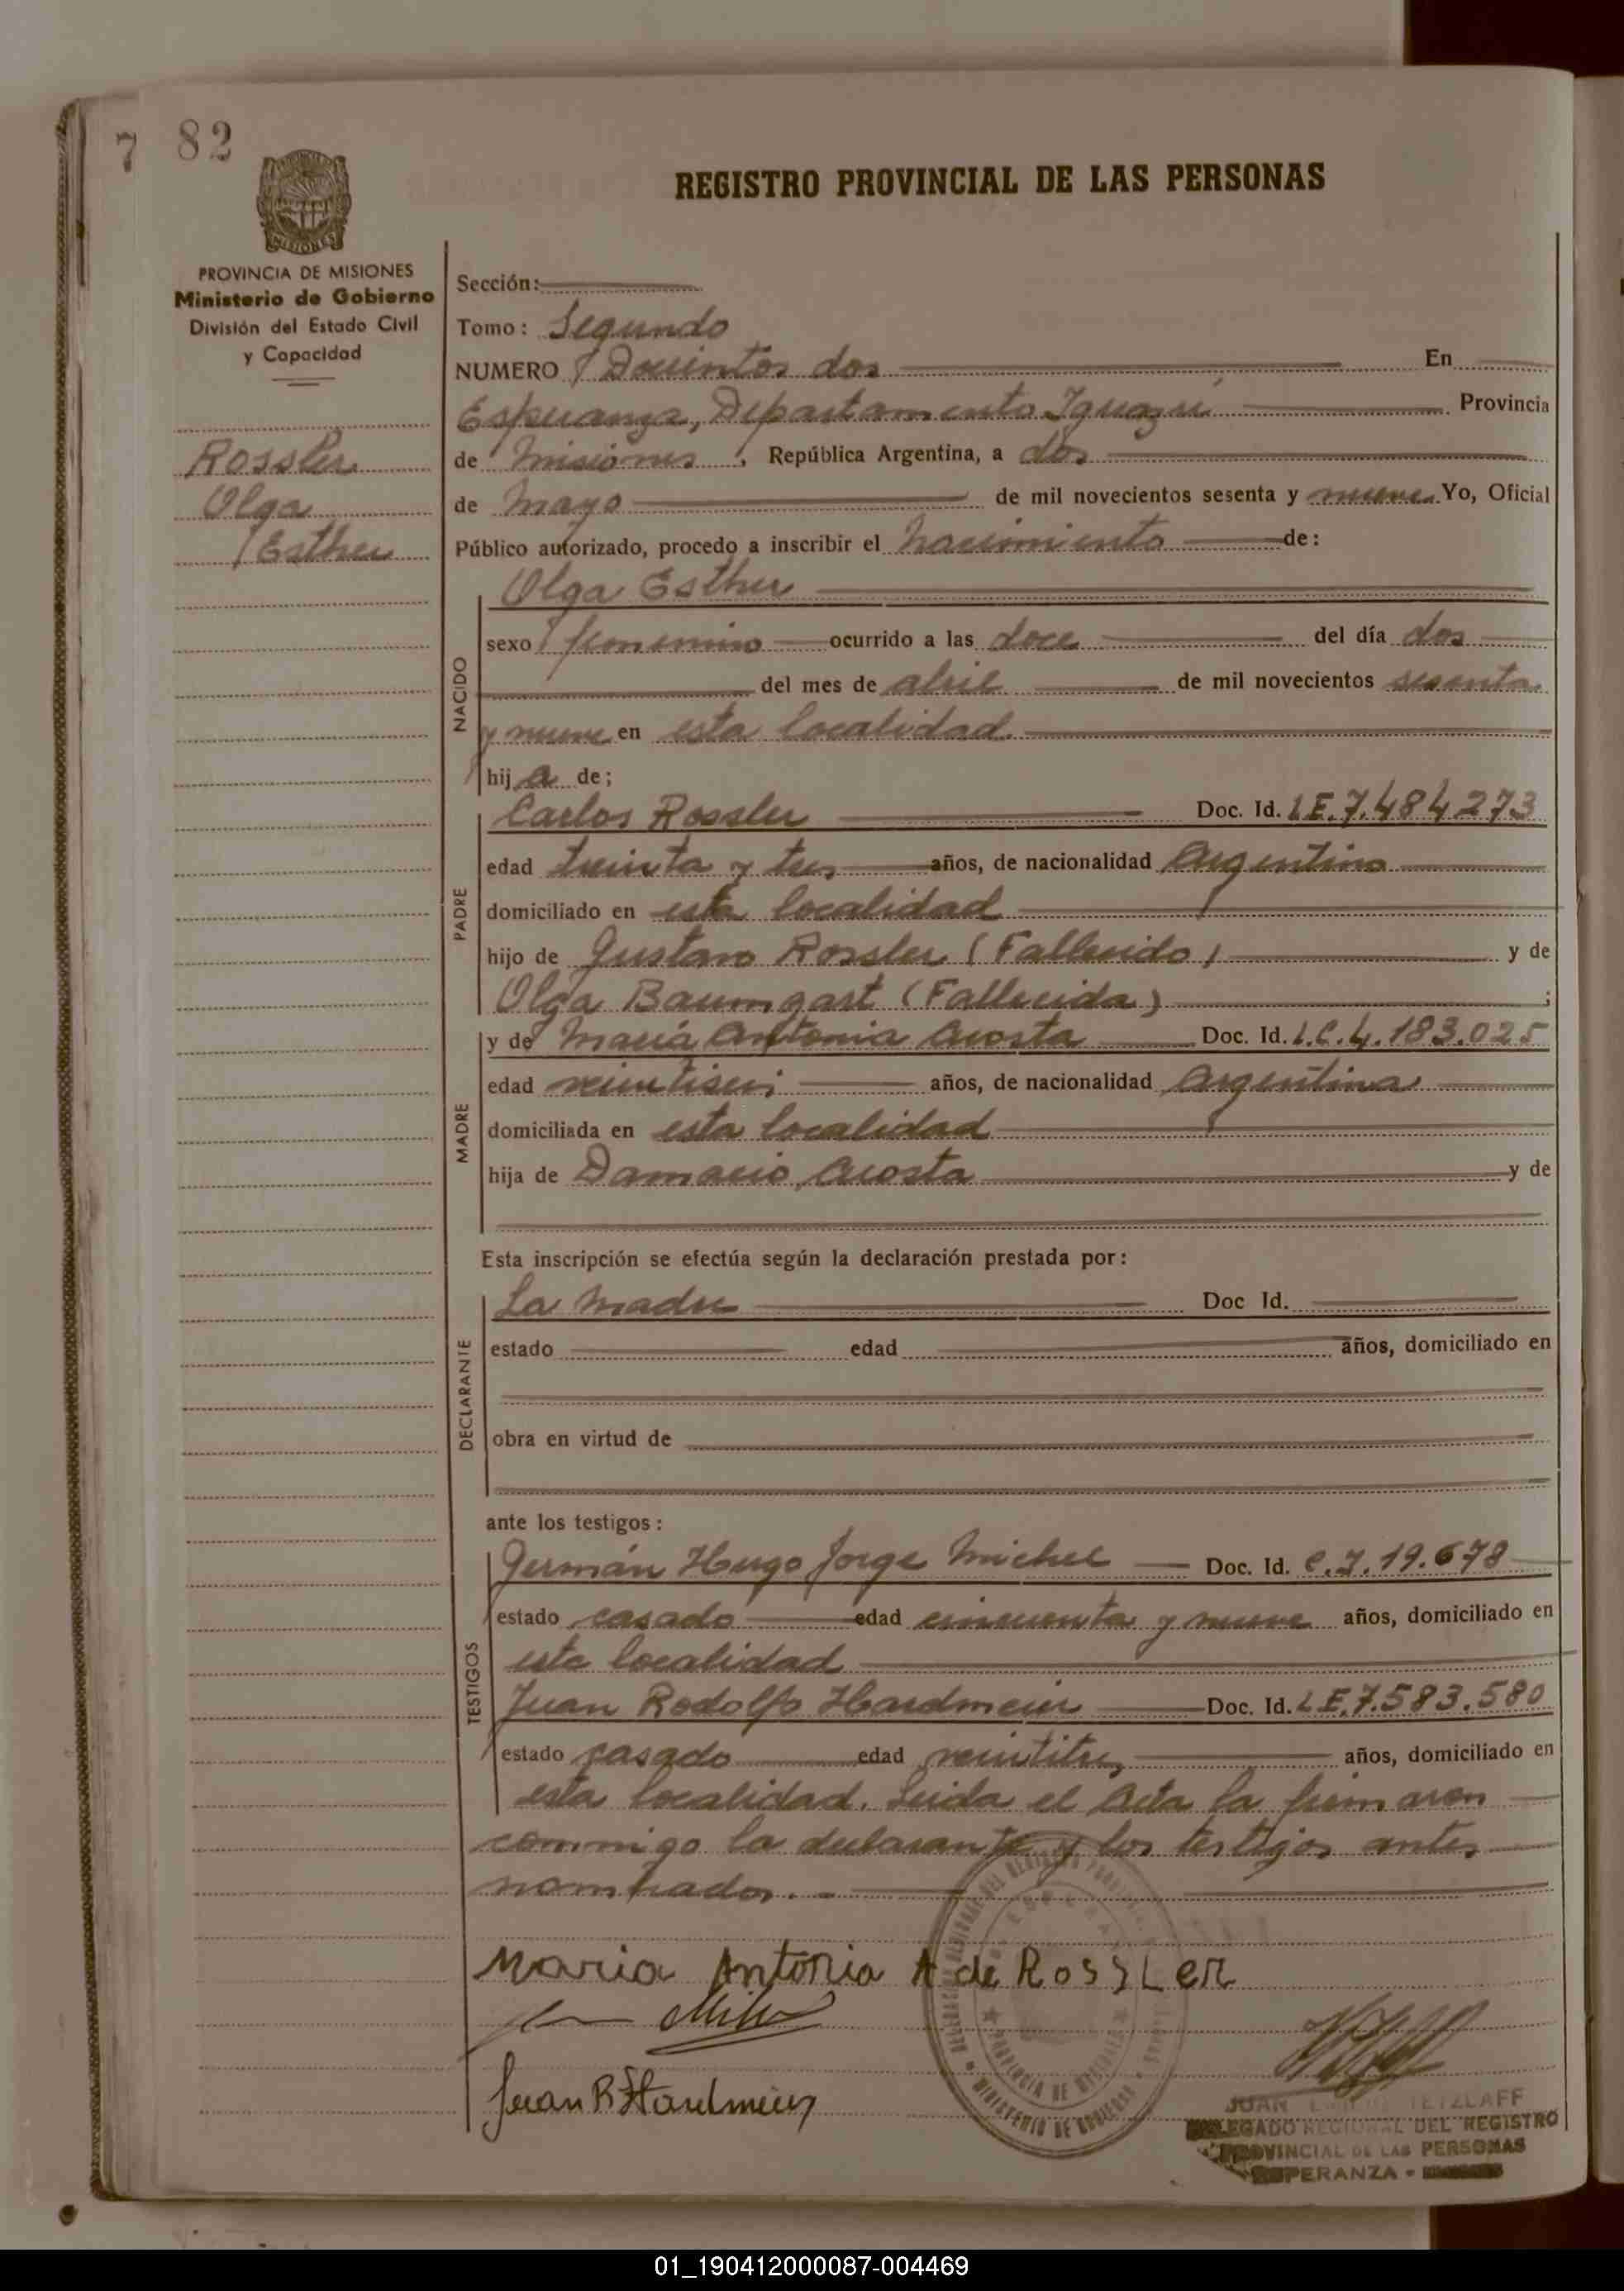 7 82
REGISTRO PROVINCIAL DE LAS PERSONAS
MISIONES
PROVINCIA DE MISIONES
Ministerio de Gobierno
División del Estado Civil
y Capacidad
Rossler
Olga
Esther
Sección:
Tomo: Segundo
NUMERO Docientos dos En
Esperanza, Departamento Iguazú Provincia
de Misiones, República Argentina, a dos
de Mayo de mil novecientos sesenta y nueve Yo, Oficial
Público autorizado, procedo a inscribir el Nacimiento de:
Olga Esther
NACIDO
sexo femenino ocurrido a las doce del día dos
del mes de abril de mil novecientos sesenta
y nueve en esta localidad.
hija de;
PADRE
Carlos Rossler Doc. Id. L.E. 7.484273
edad treinta y tres años, de nacionalidad Argentino
domiciliado en esta localidad
hijo de Gustavo Rossler (Fallecido) y de
Olga Baumgart (Fallecida) ;
MADRE
y de María Antonia Acosta Doc. Id. L.C. 4.183.025
edad veintiseis años, de nacionalidad Argentina
domiciliada en esta localidad
hija de Damacio Acosta y de
Esta inscripción se efectúa según la declaración prestada por:
DECLARANTE
La Madre Doc Id.
estado edad años, domiciliado en
obra en virtud de
ante los testigos:
TESTIGOS
Germán Hugo Jorge Michel Doc. Id. C.I. 19.678
estado casado edad cincuenta y nueve años, domiciliado en
esta localidad
Juan Rodolfo Hardmeier Doc. Id. L.E. 7.583.580
estado casado edad veintitres años, domiciliado en
esta localidad. Leida el Acta la firmaron
conmigo la declarante y los testigos antes
nombrados.-
Maria Antonia A de RossLer
Juan R Hardmeier
PROVINCIA DE MISIONES
MINISTERIO DE GOBIERNO
JUAN TETZLAFF
DELEGADO REGIONAL DEL REGISTRO
PROVINCIAL DE LAS PERSONAS
ESPERANZA -
01_190412000087-004469